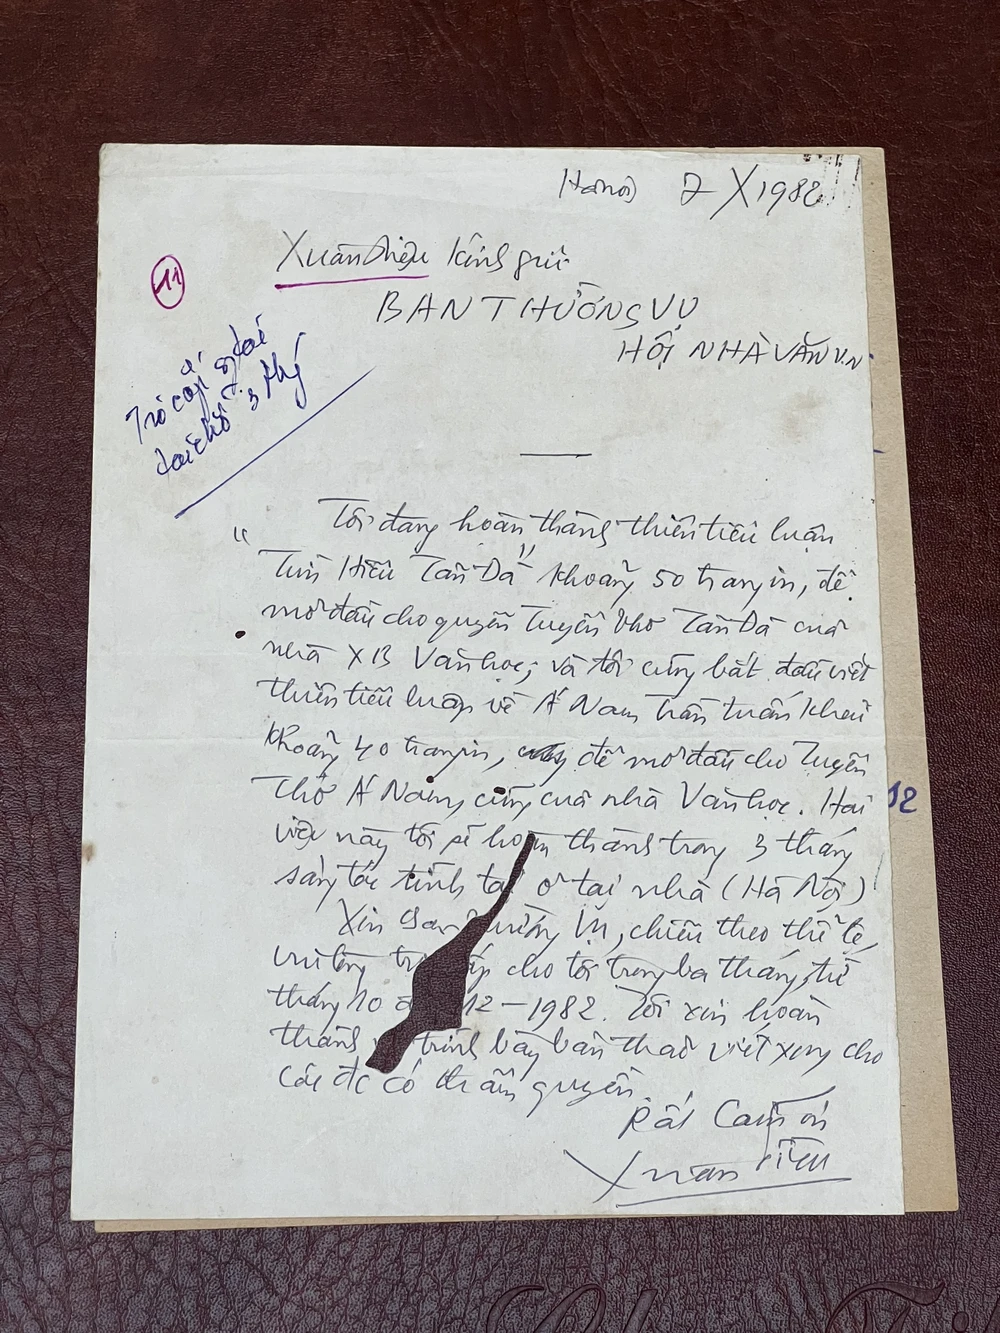 Hà nội 2 X 1982
Xuân Diệu kính gửi
11
BAN THƯỜNG VỤ
HỘI NHÀ VĂN V.N
Trợ cấp
tại chỗ 3 thg
Tôi đang hoàn thành thiên tiểu luận
"Tìm Hiểu Tản Đà" khoảng 50 trang in, để
mở đầu cho quyển Tuyển thơ Tản Đà của
nhà XB Văn học; và tôi cũng bắt đầu viết
thiên tiểu luận về Á Nam Trần Tuấn Khải
khoảng 40 trang in, để mở đầu cho Tuyển
Thơ Á Nam, cũng của nhà Văn học. Hai
12
việc này tôi sẽ hoàn thành trong 3 tháng
sáng tác tĩnh tại ở tại nhà (Hà Nội)
Xin Ban Thường Vụ, chiếu theo thể lệ,
vui lòng cho tôi trong ba tháng, từ
tháng 10 12 - 1982. Tôi xin hoàn
thành trình bày bản thảo viết xong cho
các đc có thẩm quyền.
Rất Cảm ơn
Xuân Diệu